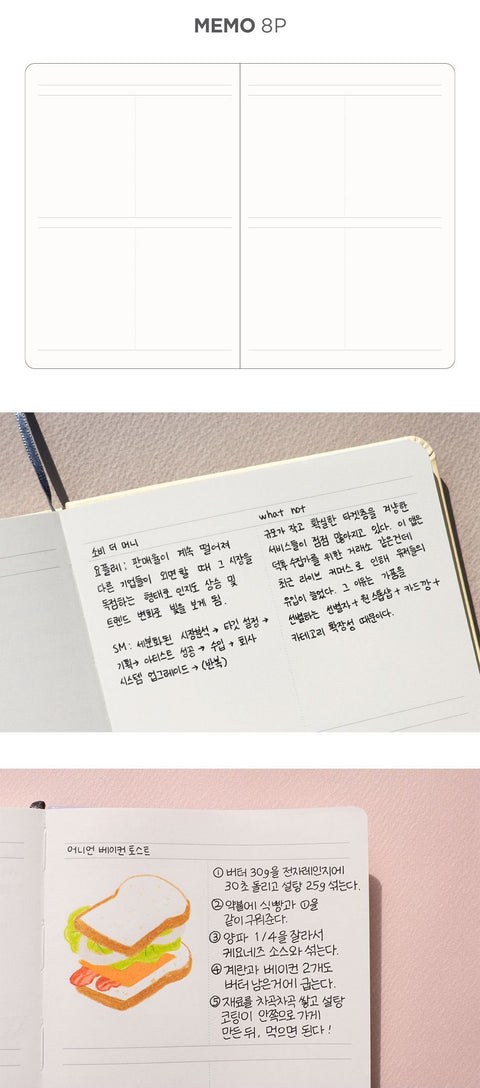 MEMO 8P
소비 더 머니
요플레: 판매율이 계속 떨어져
다른 기업들이 외면할 때 그 시장을
독점하는 형태로 인지도 상승 및
트렌드 변화로 빛을 보게 됨.
SM: 세분화된 시장분석 → 타깃 설정 →
기획 → 아티스트 성공 → 수입 + 회사
시스템 업그레이드 → (반복)
what not
규모가 작고 확실한 타겟층을 겨냥한
서비스들이 점점 많아지고 있다. 이 앱은
덕투 수집가를 위한 거래소 같은건데
최근 라이브 커머스로 인해 유저들의
유입이 늘었다. 그 이유는 가품을
선별하는 선별자 + 원스톱샵 + 카드깡 +
카테고리 확장성 때문이다.
어니언 베이컨 토스트
① 버터 30g을 전자레인지에
30초 돌리고 설탕 25g 섞는다.
② 약불에 식빵과 ①을
같이 구워준다.
③ 양파 1/4을 잘라서
케요네즈 소스와 섞는다.
④ 계란과 베이컨 2개도
버터 남은거에 굽는다.
⑤ 재료를 차곡차곡 쌓고 설탕
코팅이 안쪽으로 가게
만든 뒤, 먹으면 된다!